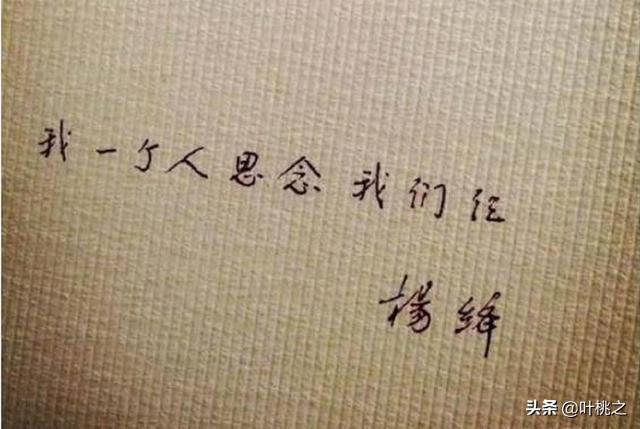 我一个人思念我们仨
杨绛
头条 @叶桃之